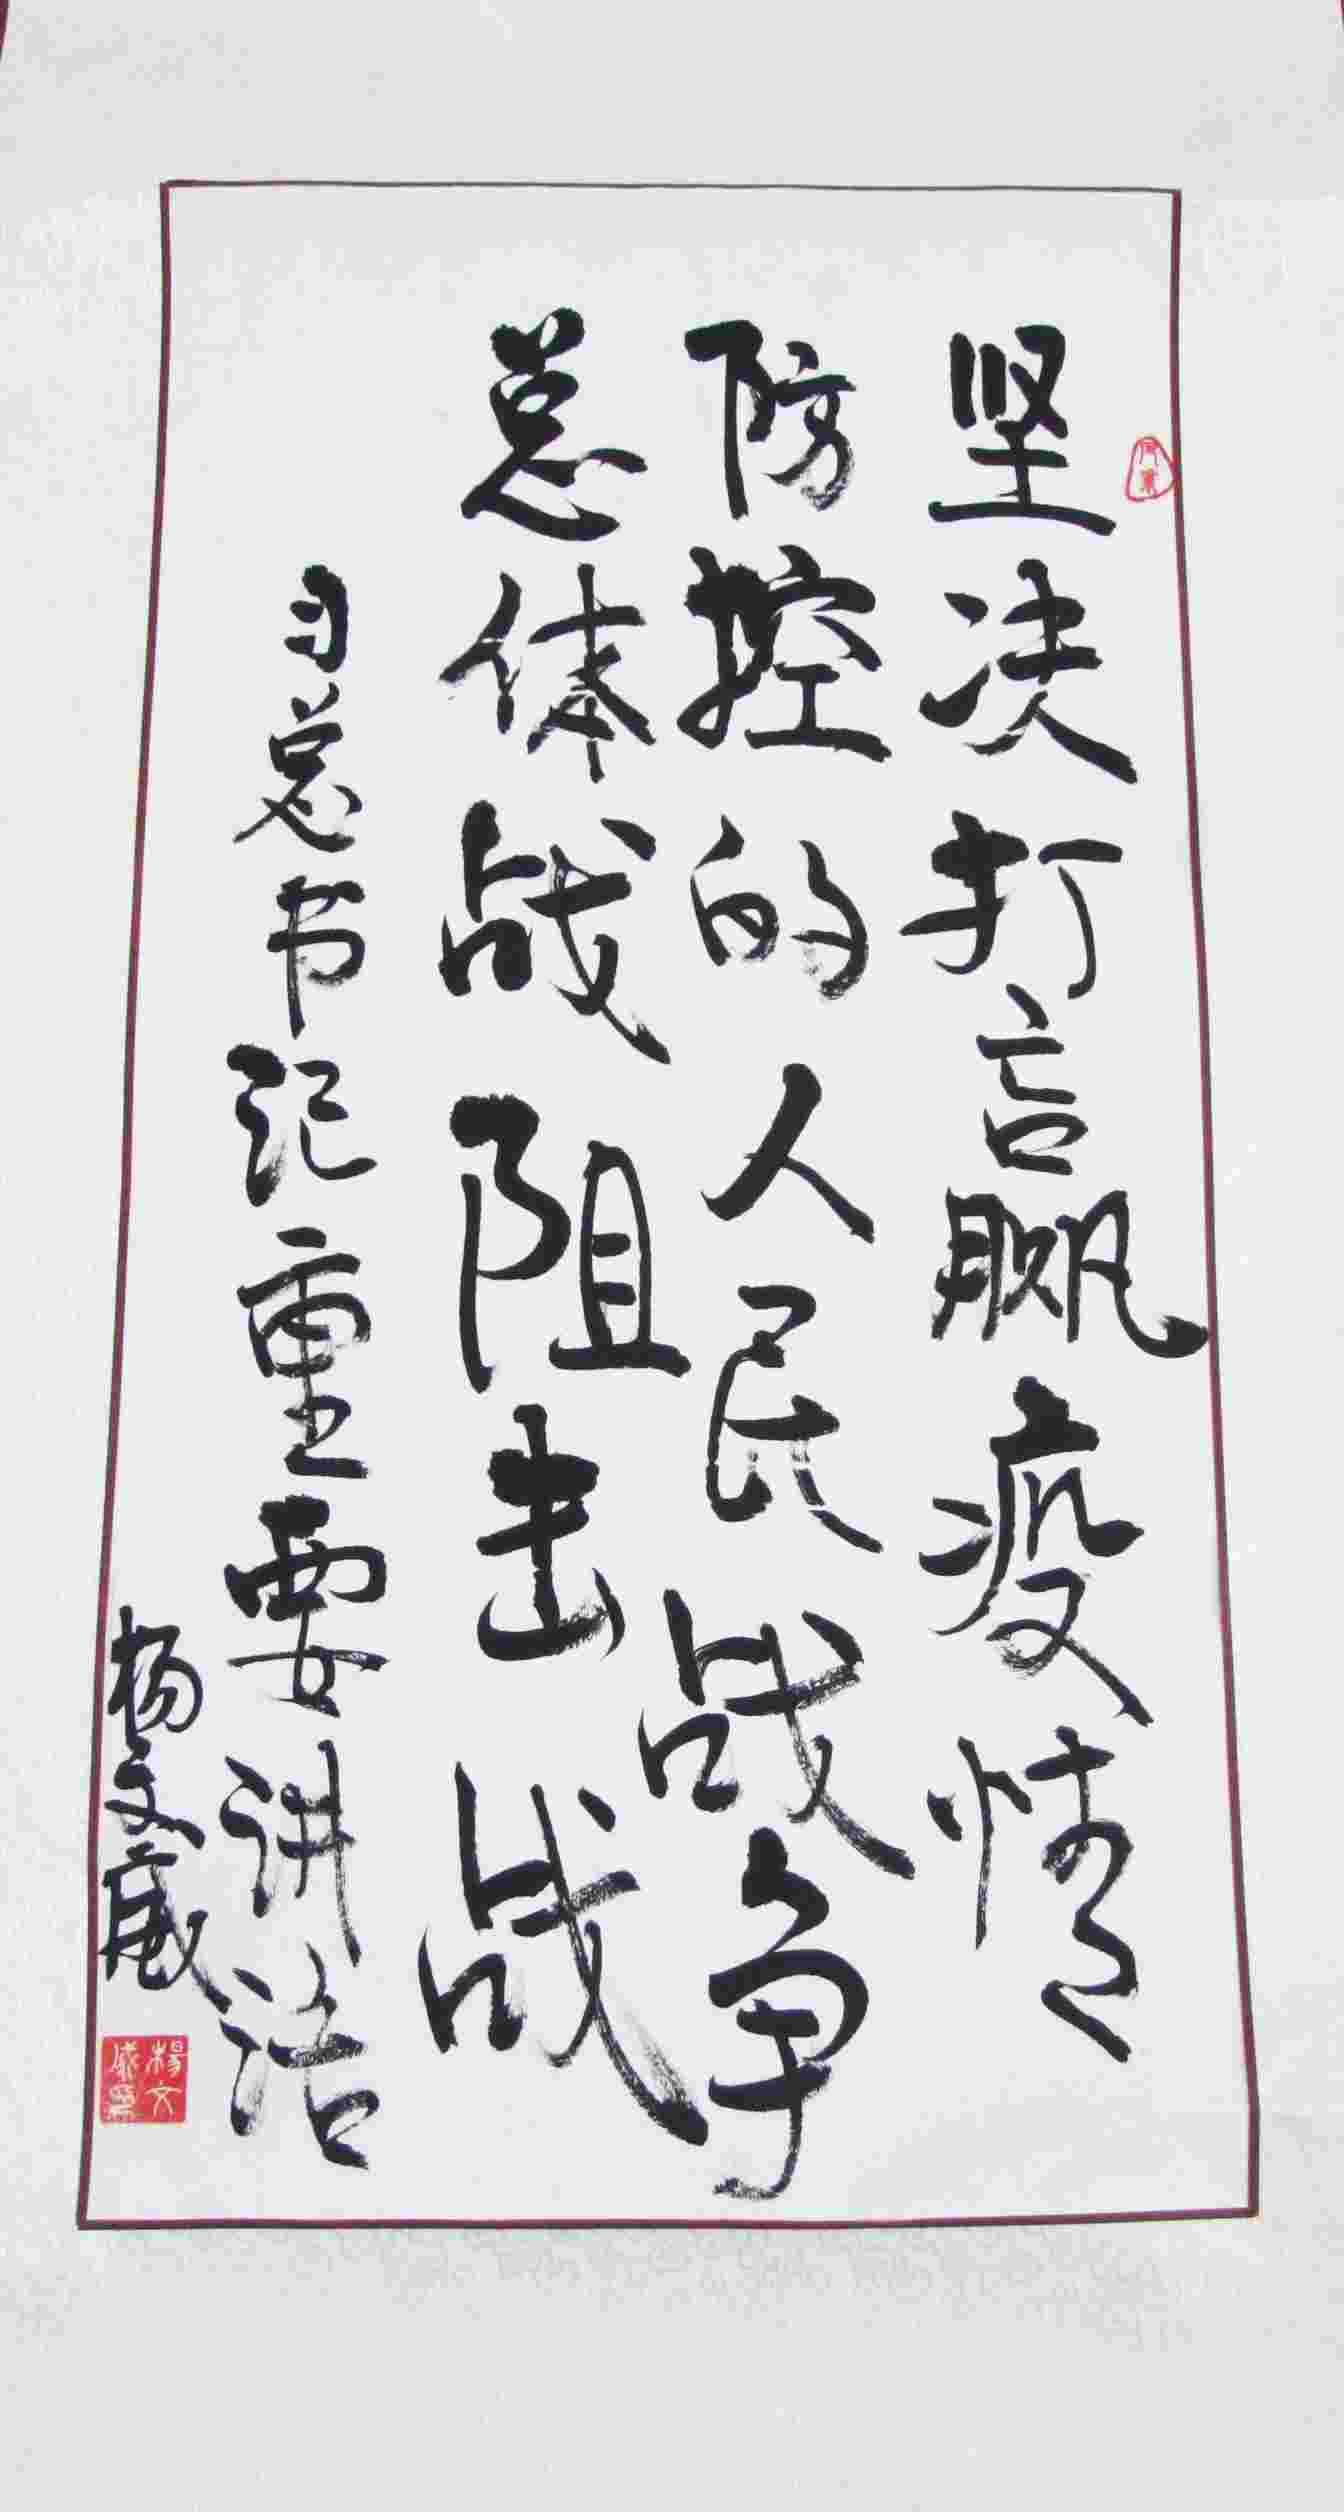 坚决打赢疫情
防控的人民战争
总体战阻击战
习总书记重要讲话
杨文威